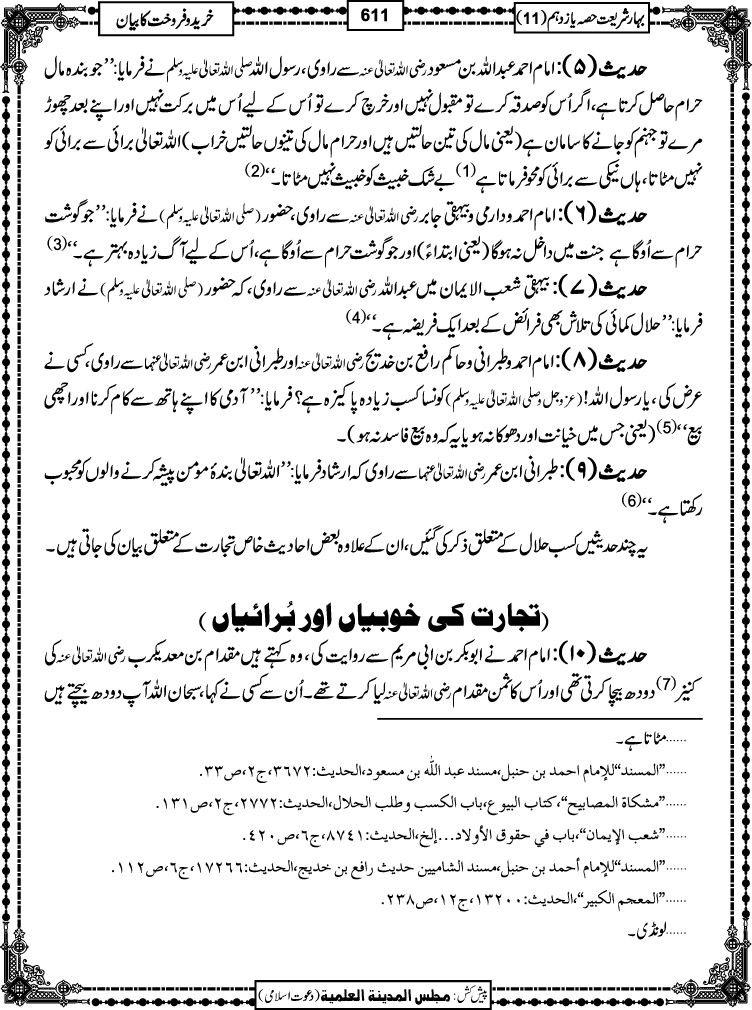 بہار شریعت حصہ یازدہم (11)
611
خرید و فروخت کا بیان
حدیث (۵): امام احمد عبداللہ بن مسعود رضی اللہ تعالیٰ عنہ سے راوی، رسول اللہ صلی اللہ تعالیٰ علیہ وسلم نے فرمایا: ’’جو بندہ مال
حرام حاصل کرتا ہے، اگر اُس کو صدقہ کرے تو مقبول نہیں اور خرچ کرے تو اُس کے لیے اُس میں برکت نہیں اور اپنے بعد چھوڑ
مرے تو جہنم کو جانے کا سامان ہے (یعنی مال کی تین حالتیں ہیں اور حرام مال کی تینوں حالتیں خراب) اللہ تعالیٰ برائی سے برائی کو
نہیں مٹاتا، ہاں نیکی سے برائی کو محو فرماتا ہے (1) بے شک خبیث کو خبیث نہیں مٹاتا۔‘‘ (2)
حدیث (۶): امام احمد و دارمی و بیہقی جابر رضی اللہ تعالیٰ عنہ سے راوی، حضور (صلی اللہ تعالیٰ علیہ وسلم) نے فرمایا: ’’جو گوشت
حرام سے اُوگا ہے جنت میں داخل نہ ہوگا (یعنی ابتداءً) اور جو گوشت حرام سے اُوگا ہے، اُس کے لیے آگ زیادہ بہتر ہے۔‘‘ (3)
حدیث (۷): بیہقی شعب الایمان میں عبداللہ رضی اللہ تعالیٰ عنہ سے راوی، کہ حضور (صلی اللہ تعالیٰ علیہ وسلم) نے ارشاد
فرمایا: ’’حلال کمائی کی تلاش بھی فرائض کے بعد ایک فریضہ ہے۔‘‘ (4)
حدیث (۸): امام احمد و طبرانی و حاکم رافع بن خدیج رضی اللہ تعالیٰ عنہ اور طبرانی ابن عمر رضی اللہ تعالیٰ عنہما سے راوی، کسی نے
عرض کی، یارسول اللہ! (عزوجل وصلی اللہ تعالیٰ علیہ وسلم) کونسا کسب زیادہ پاکیزہ ہے؟ فرمایا: ’’آدمی کا اپنے ہاتھ سے کام کرنا اور اچھی
بیع‘‘ (5) (یعنی جس میں خیانت اور دھوکا نہ ہو یا یہ کہ وہ بیع فاسد نہ ہو)۔
حدیث (۹): طبرانی ابن عمر رضی اللہ تعالیٰ عنہما سے راوی کہ ارشاد فرمایا: ’’اللہ تعالیٰ بندۂ مؤمن پیشہ کرنے والوں کو محبوب
رکھتا ہے۔‘‘ (6)
یہ چند حدیثیں کسب حلال کے متعلق ذکر کی گئیں، ان کے علاوہ بعض احادیث خاص تجارت کے متعلق بیان کی جاتی ہیں۔
(تجارت کی خوبیاں اور بُرائیاں)
حدیث (۱۰): امام احمد نے ابوبکر بن ابی مریم سے روایت کی، وہ کہتے ہیں مقدام بن معدیکرب رضی اللہ تعالیٰ عنہ کی
کنیز (7) دودھ بیچا کرتی تھی اور اُس کا ثمن مقدام رضی اللہ تعالیٰ عنہ لیا کرتے تھے۔ اُن سے کسی نے کہا، سبحان اللہ آپ دودھ بیچتے ہیں
......مٹاتا ہے۔
......”المسند“للإمام احمد بن حنبل،مسند عبد اللّٰه بن مسعود،الحدیث:۳۶۷۲،ج۲،ص۳۳.
......”مشکاة المصابیح“،کتاب البیوع،باب الکسب وطلب الحلال،الحدیث:۲۷۷۲،ج۲،ص۱۳۱.
......”شعب الإیمان“،باب في حقوق الأولاد...إلخ،الحدیث:۸۷۴۱،ج۶،ص۴۲۰.
......”المسند“للإمام أحمد بن حنبل،مسند الشامیین حدیث رافع بن خدیج،الحدیث:۱۷۲۶۶،ج۶،ص۱۱۲.
......”المعجم الکبیر“،الحدیث:۱۳۲۰۰،ج۱۲،ص۲۳۸.
......لونڈی۔
پیش کش: مجلس المدینة العلمیة (دعوت اسلامی)